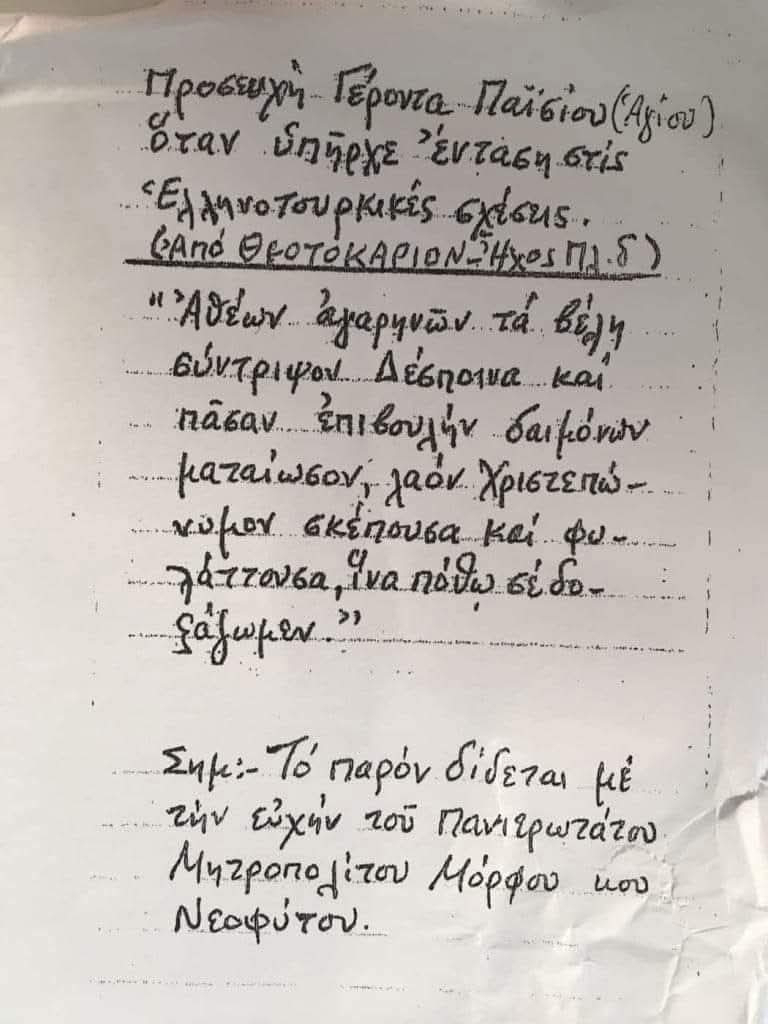 Προσευχή Γέροντα Παϊσίου (Ἁγίου)
ὅταν ὑπῆρχε ἔνταση στίς
Ἑλληνοτουρκικές σχέσεις.
(Ἀπό ΘΕΟΤΟΚΑΡΙΟΝ-Ἦχος Πλ. δ)
"Ἀθέων ἀγαρηνῶν τά βέλη
σύντριψον Δέσποινα καί
πᾶσαν ἐπιβουλήν δαιμόνων
ματαίωσον, λαόν Χριστεπώ-
νυμον σκέπουσα καί φυ-
λάττουσα, ἵνα πόθω σέ δο-
ξάζωμεν."
Σημ:- Τό παρόν δίδεται μέ
τήν εὐχήν τοῦ Πανιερωτάτου
Μητροπολίτου Μόρφου κου
Νεοφύτου.